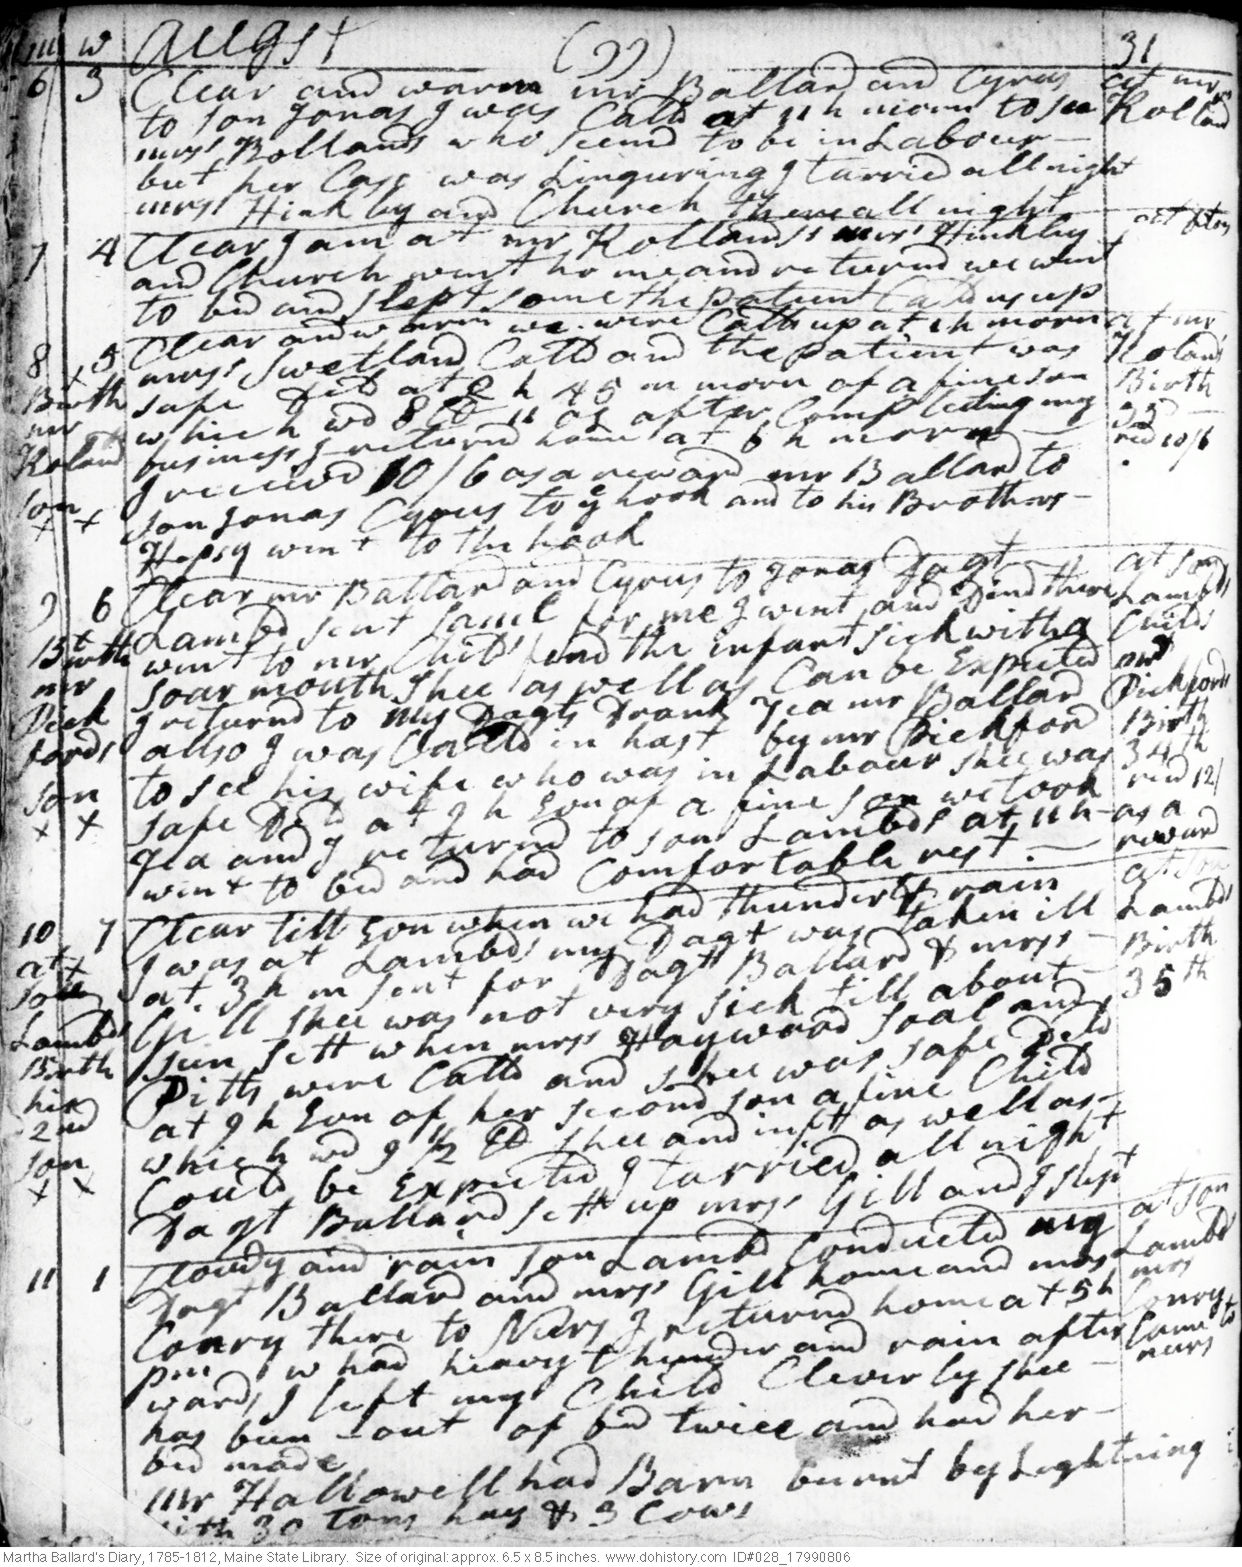 m w Augst (99) 31
6 3 Clear and warm mr Ballard and Cyrus at mr
to son Jonas I was Calld at 11 h morn to see Rolland
mrss Rollands who seemd to be in Labour
but her Case was Linguring I tarried all night
mrss Hinkley and Church there all night
7 4 Clear I am at mr Rollands mrss Hinkley at ditos
and Church went home and returnd we went
to bed and slept some the patient Calld us up
8 5 Clear and warm we were Calld up at 1 h morn at mr
mrss Swetland Calld and the patient was Rolands
Birth safe Deld at 2 h 45 m morn of a fine son Birth
mr which wd 8 lb 11 oz after Compleeting my 33d
Roland business I returnd home at 6 h morn red 10/6
son I received 10/6 as a reward mr Ballard to
x x son Jonas Cyrus to ye hook and to his Brothers
Hepsy went to the hook
9 6 Clear mr Ballard and Cyrus to Jonas Dagt at son
Birth Lambd sent Saml for me I went and Dind there Lambds
mr went to mr Childs find the infant sick with a Childs
Dick soar mouth Shee as well as Can be Expected and
fords I returnd to my Dagts Drank Tea mr Ballard Pickfords
son allso I was Calld in hast by mr Pickford Birth
x x to see his wife who was in Labour shee was 34th
safe Deld at 9 h Evn of a fine son we took red 12/
Tea and I returnd to son Lambds at 11 h as a
went to bed and had Comfortable rest reward
10 7 Clear till Evn when we had thunder & rain at son
at I was at Lambds my Dagt was taken ill Lambds
son at 3 h m sent for Dagt Ballard & mrss Birth
Lambds Gill shee was not very sick till about 35th
Birth sun sett when mrss Haywood Soal and
his Pitts were Calld and shee was safe Deld
2nd at 9 h Evn of her second son a fine Child
son which wd 9 1/2 lb shee and inft as well as
x x Could be Expected I tarried all night
Dagt Ballard sett up mrss Gill and I slept
11 1 Cloudy and rain son Lambd Conducted my at son
Dagt Ballard and mrss Gill home and mrs Lambds
Conry there to Nurs I returnd home at 5 h mrs
pm we had heavy thunder and rain after Conry
wards I left my Child Cleverly shee came to
has been out of bed twice and had her nurs
bed made
mr Hallowell had Barn burnt by Lightning
with 30 Tons hay & 3 Cows
Martha Ballard's Diary, 1785-1812, Maine State Library. Size of original: approx. 6.5 x 8.5 inches. www.dohistory.com ID#028_17990806